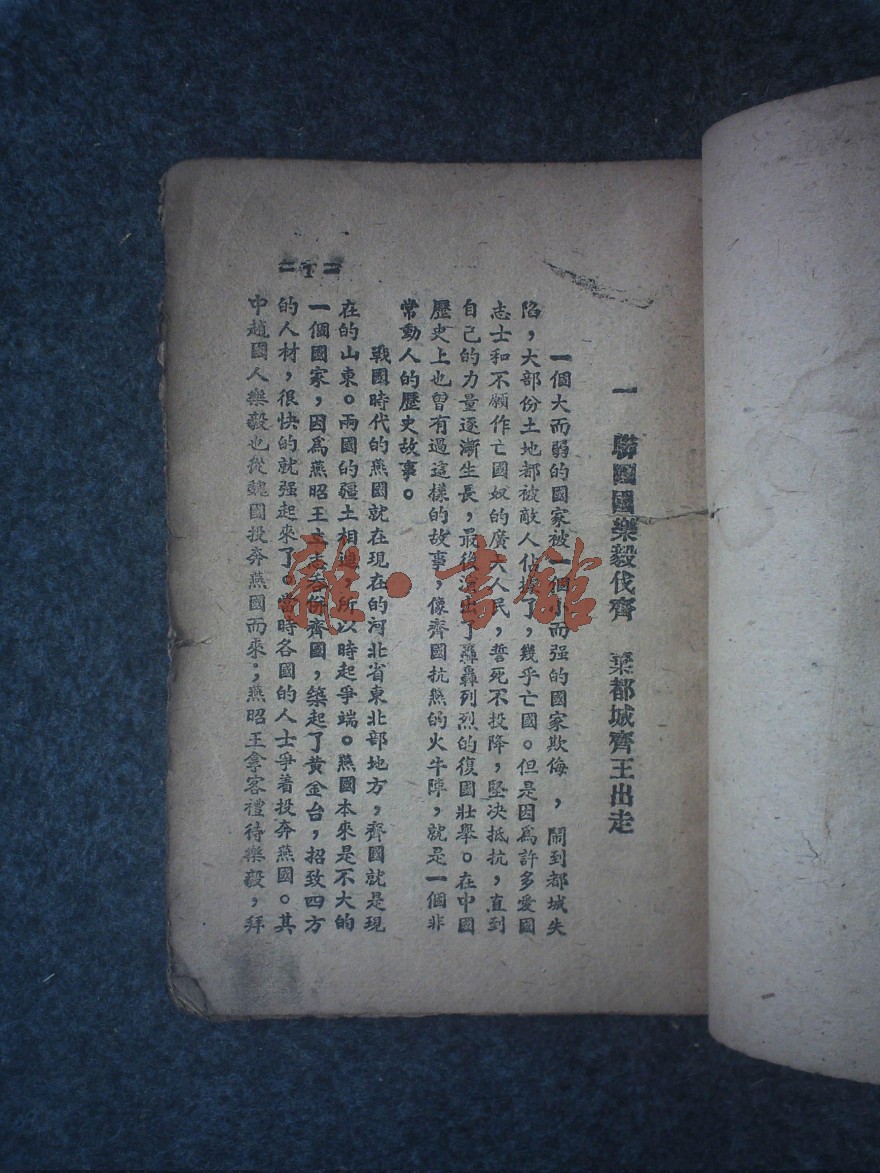 一　聯四國樂毅伐齊　棄都城齊王出走
一個大而弱的國家被一個小而强的國家欺侮，鬧到都城失
陷，大部份土地都被敵人佔據了，幾乎亡國。但是因爲許多愛國
志士和不願作亡國奴的廣大人民，誓死不投降，堅决抵抗，直到
自己的力量逐漸生長，最後演出了轟轟列烈的復國壯舉。在中國
歷史上也曾有過這樣的故事，像齊國抗燕的火牛陣，就是一個非
常動人的歷史故事。
戰國時代的燕國就在現在的河北省東北部地方，齊國就是現
在的山東。兩國的疆土相連，所以時起爭端。燕國本來是不大的
一個國家，因爲燕昭王立志吞併齊國，築起了黄金台，招致四方
的人材，很快的就强起來了。當時各國的人士爭着投奔燕國。其
中趙國人樂毅也從魏國投奔燕國而來，燕昭王拿客禮待樂毅，拜
1
雜·書館